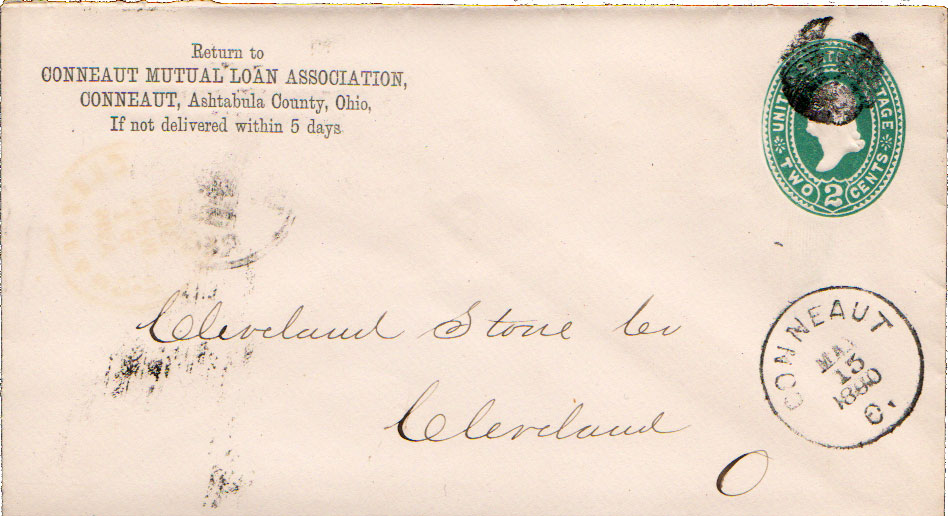 Return to
CONNEAUT MUTUAL LOAN ASSOCIATION,
CONNEAUT, Ashtabula County, Ohio,
If not delivered within 5 days
UNITED STATES POSTAGE
TWO 2 CENTS
Cleveland Stone Co
Cleveland
O
CONNEAUT
13
1890
O.